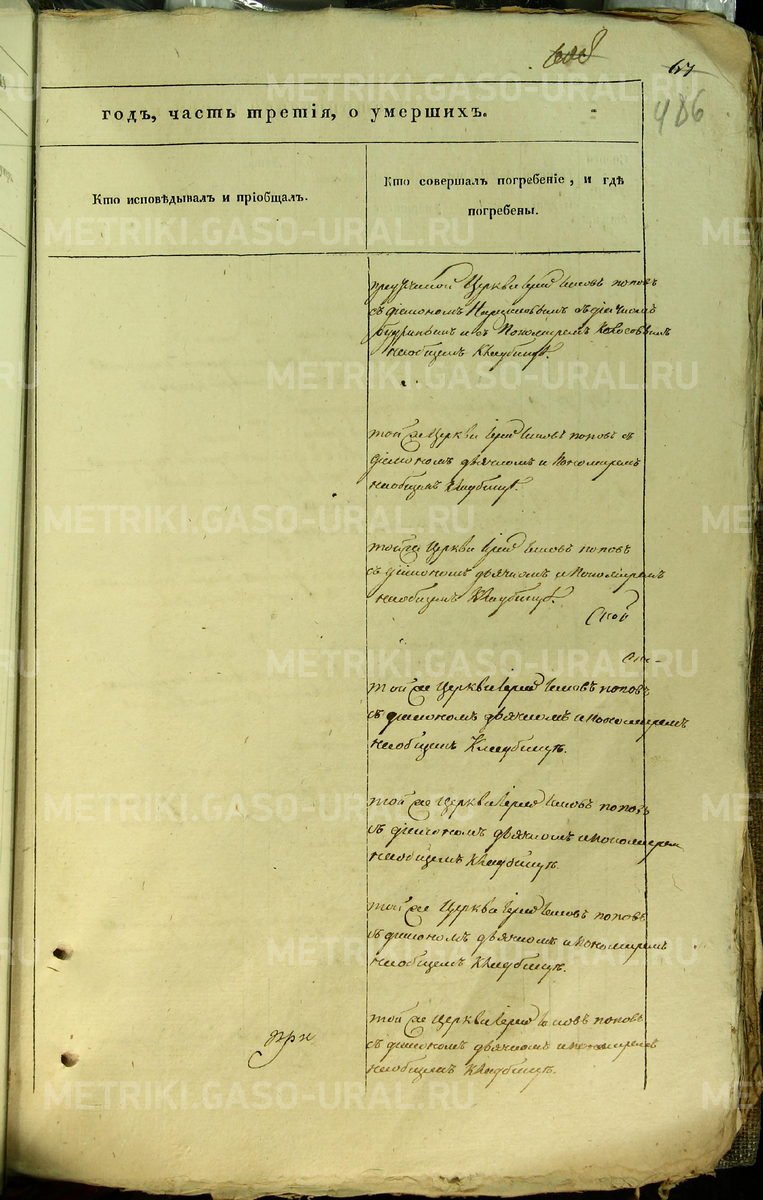 67
486
годъ, часть третія, о умершихъ.
Кто исповѣдывалъ и пріобщалъ.
Кто совершалъ погребеніе, и гдѣ
погребены.
Церкви Іерей Іаковъ поповъ
съ діакономъ
и съ Пономаремъ
на общемъ Кладбищѣ.
той же Церкви Іерей Іаковъ поповъ съ
діакономъ дьячкомъ и Пономаремъ
на общемъ Кладбищѣ.
той же Церкви Іерей Іаковъ поповъ
съ діакономъ дьячкомъ и Пономаремъ
на общемъ Кладбищѣ.
той же Церкви Іерей Іаковъ поповъ
съ діакономъ дьячкомъ и пономаремъ
на общемъ Кладбищѣ.
той же Церкви Іерей Іаковъ поповъ
съ діакономъ дьячкомъ и пономарем
на общемъ Кладбищѣ.
той же Церкви Іерей Іаковъ поповъ
съ діакономъ дьячкомъ и Пономаремъ
на общемъ Кладбищѣ.
той же Церкви Іерей Іаковъ поповъ
при
съ діакономъ дьячкомъ и пономаремъ
на общемъ Кладбищѣ.
METRIKI.GASO-URAL.RU